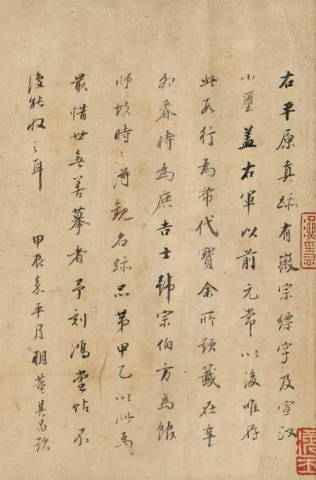 右平原真跡有徽宗縹字及宣政
小璽蓋右軍以前元常以後唯存
此數行為希代寶余所題籤在辛
卯春時為庶吉士韓宗伯方為館
師故時時得觀名跡品第甲乙以此為
最惜世無善摹者予刻鴻堂帖不
復能收之耳
甲辰嘉平月朔董其昌題